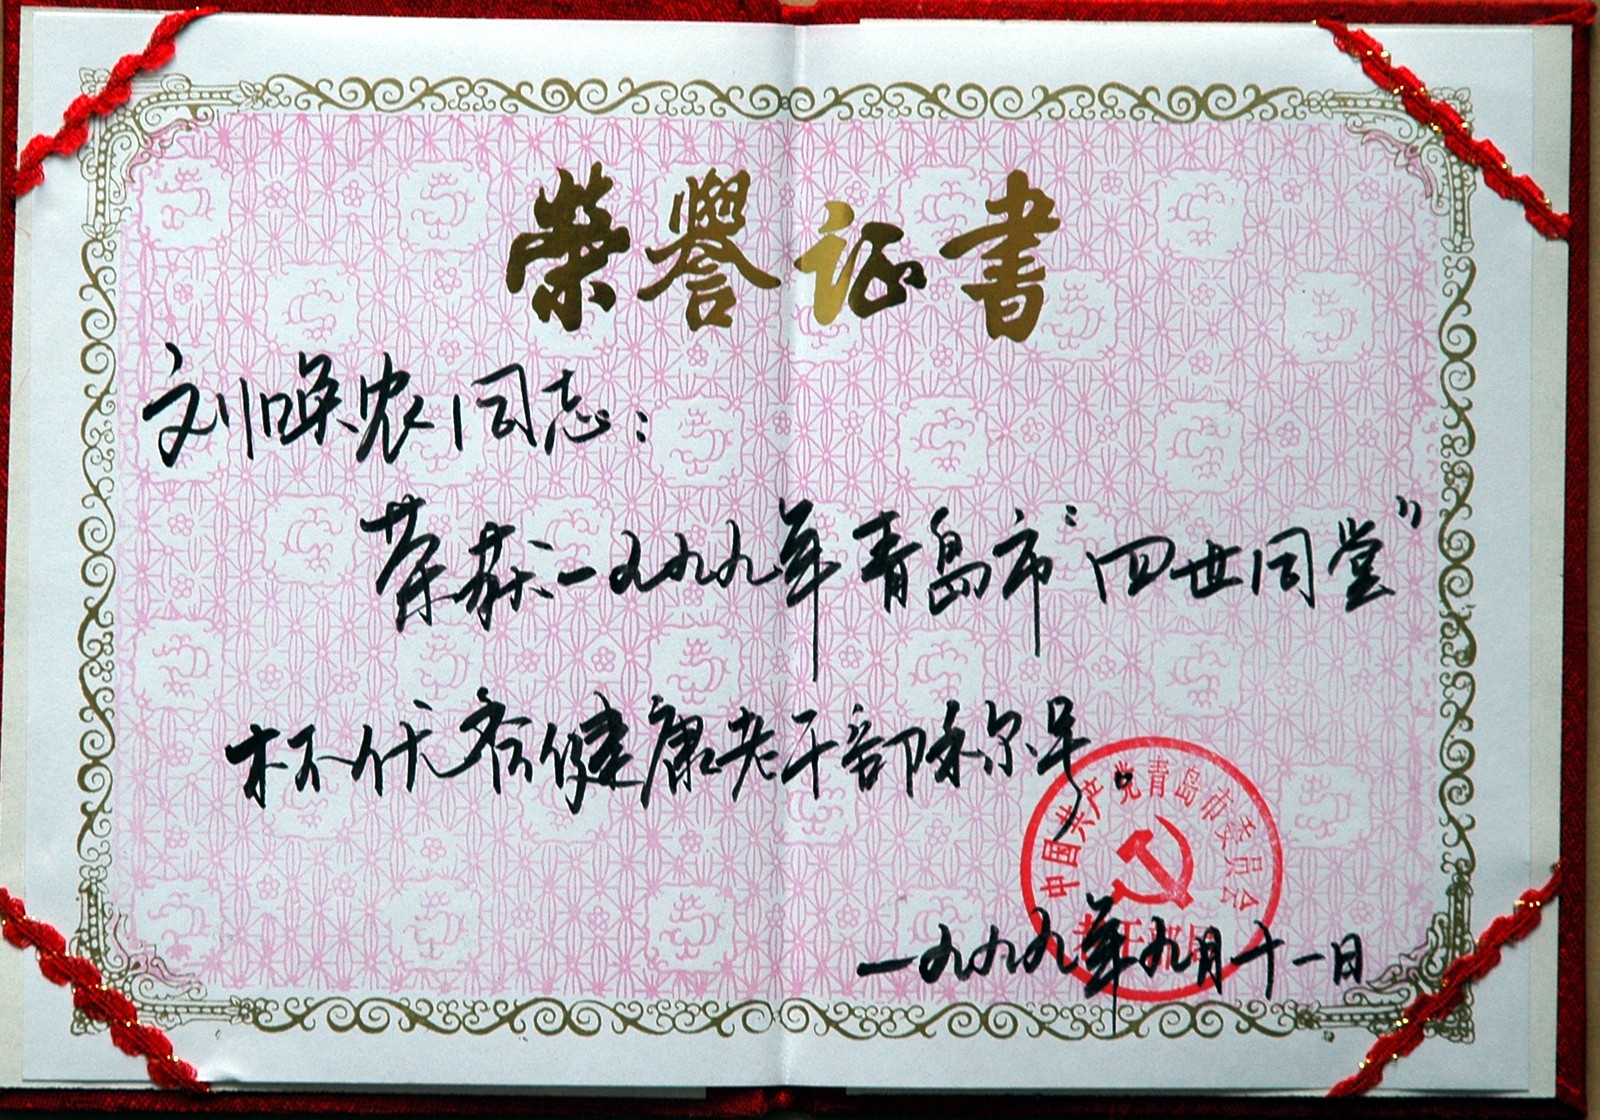 荣誉证书
刘焕农同志：
荣获一九九九年青岛市“四世同堂”
杯优秀健康老干部称号。
中国共产党青岛市委员会
老干部局
一九九九年九月十一日